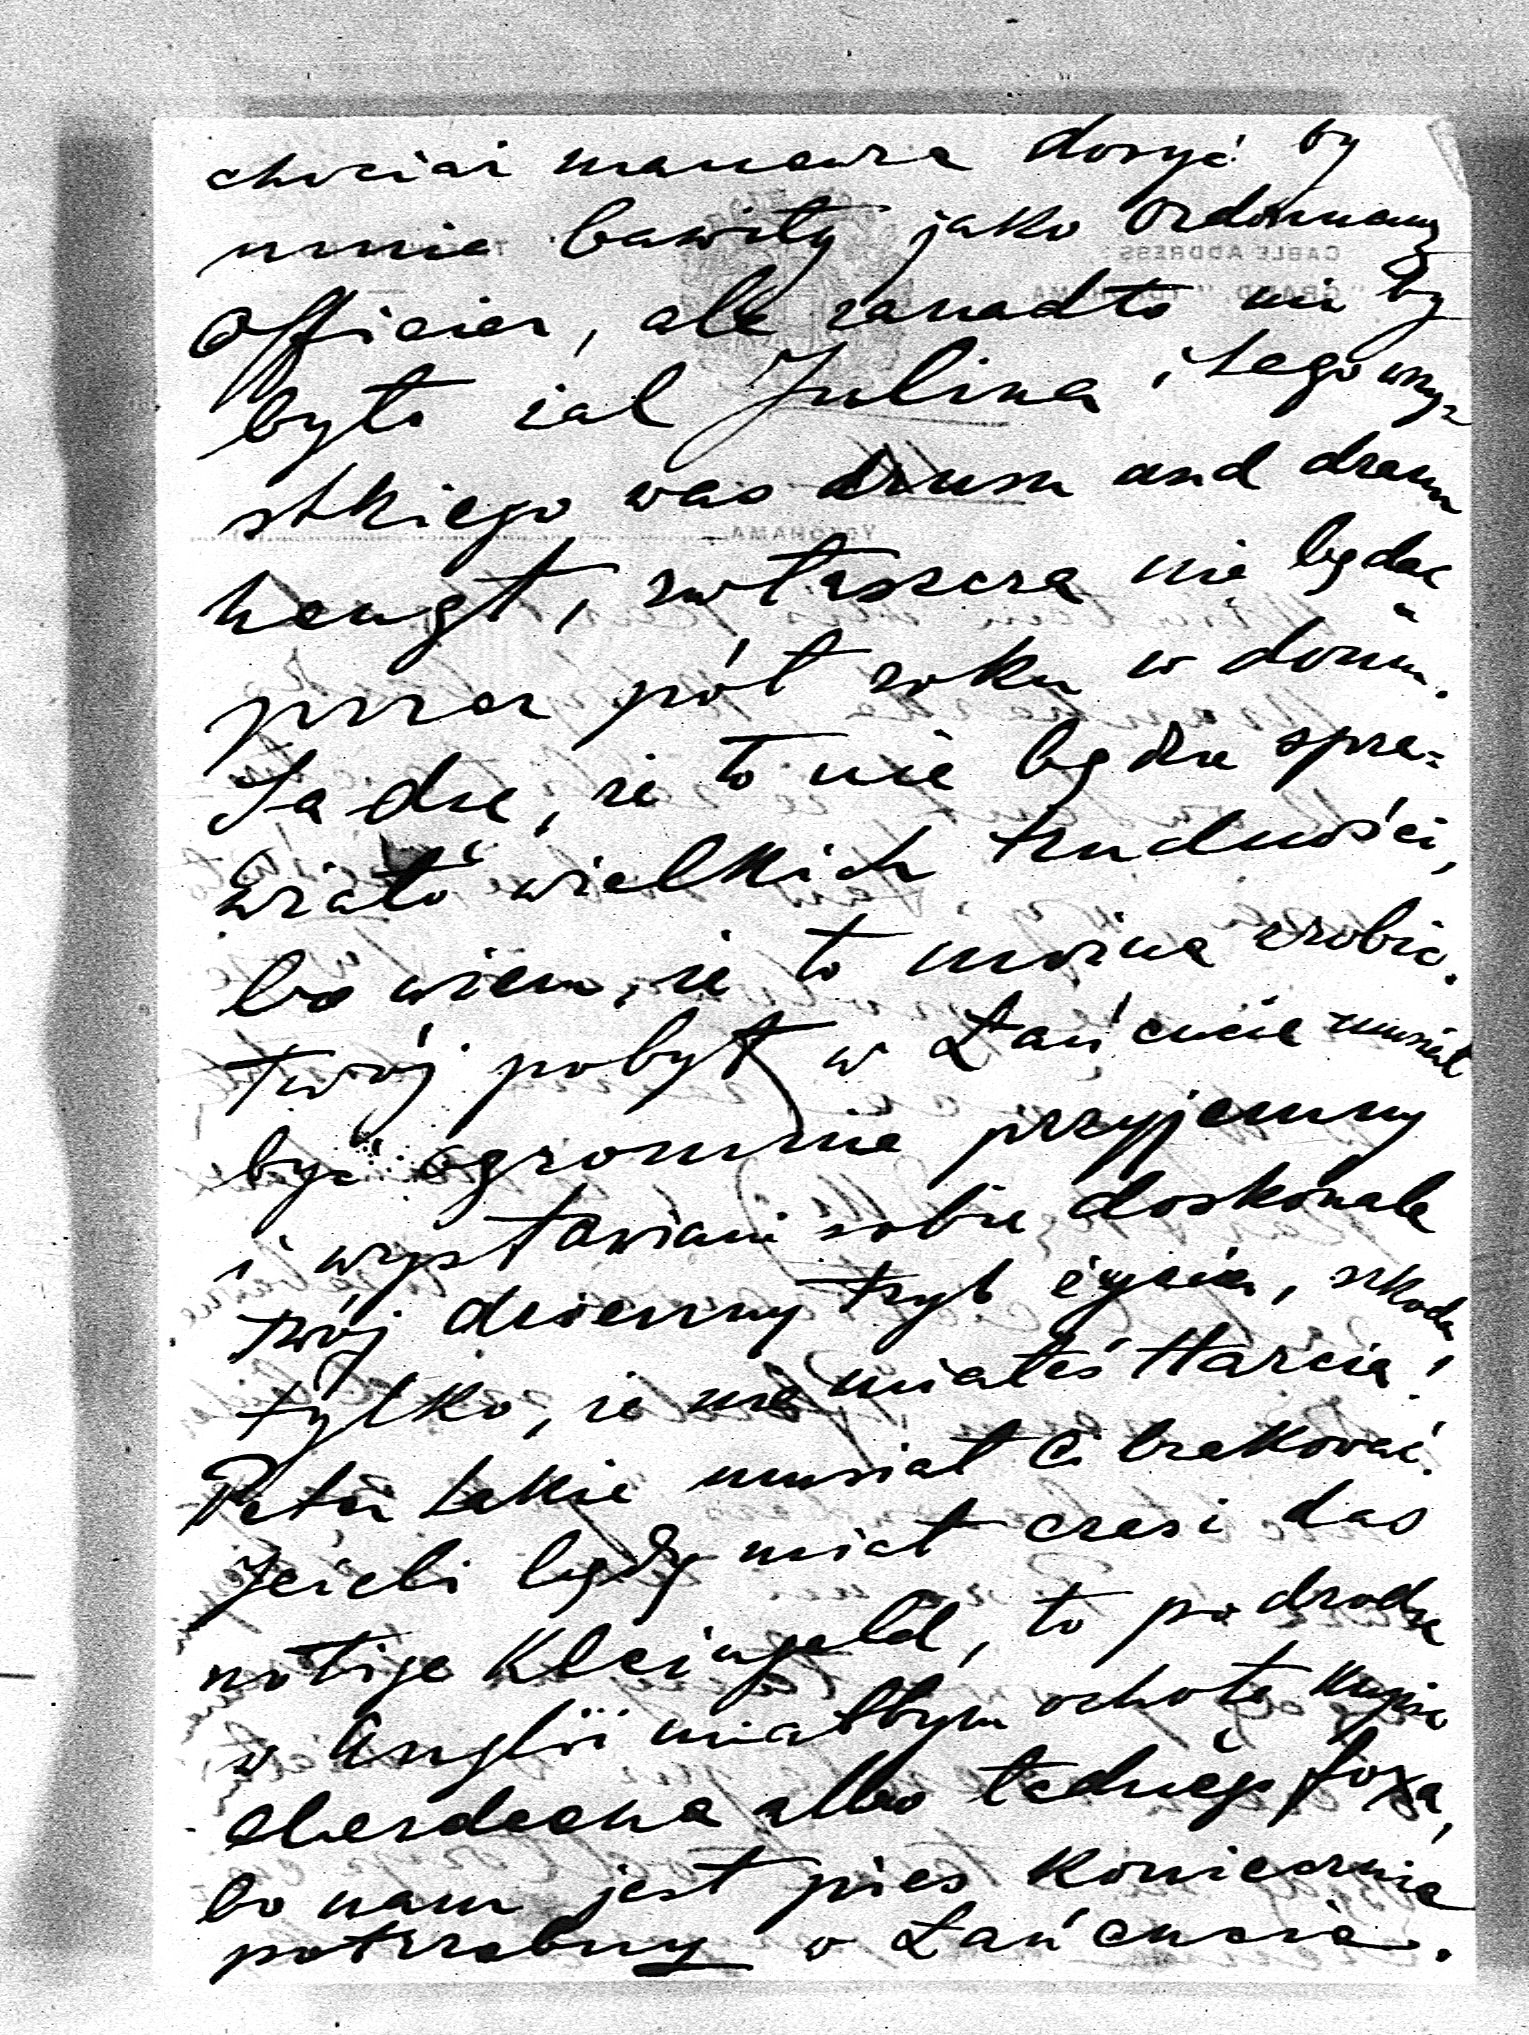 chociaż manewra dosyć by
mnie bawiły jako Ordonnanz
Officier, ale zanadto mi by
było żal Julina i tego wszy=
stkiego was drum und dran
hengt, zwłaszcza nie będąc
przez pół roku w domu.
Sądzę, że to nie będzie spra=
wiało wielkich trudności,
bo wiem, że to można zrobić.
Twój pobyt w Łańcucie musiał
być ogromnie przyjemny
i wystawiam sobie doskonale
twój dzienny tryb życia, szkoda
tylko, że nie miałeś Harcia!
Petuś także musiał Ci brakować.
Jeżeli będę miał czas i das
nötige Kleingeld, to po drodze
w Anglii miałbym ochotę kupić
aberdeena albo ładnego foxa,
bo nam jest pies koniecznie
potrzebny w Łańcucie.
CABLE ADDRESS:
"GRAND," YOKOHAMA
YOKOHAMA